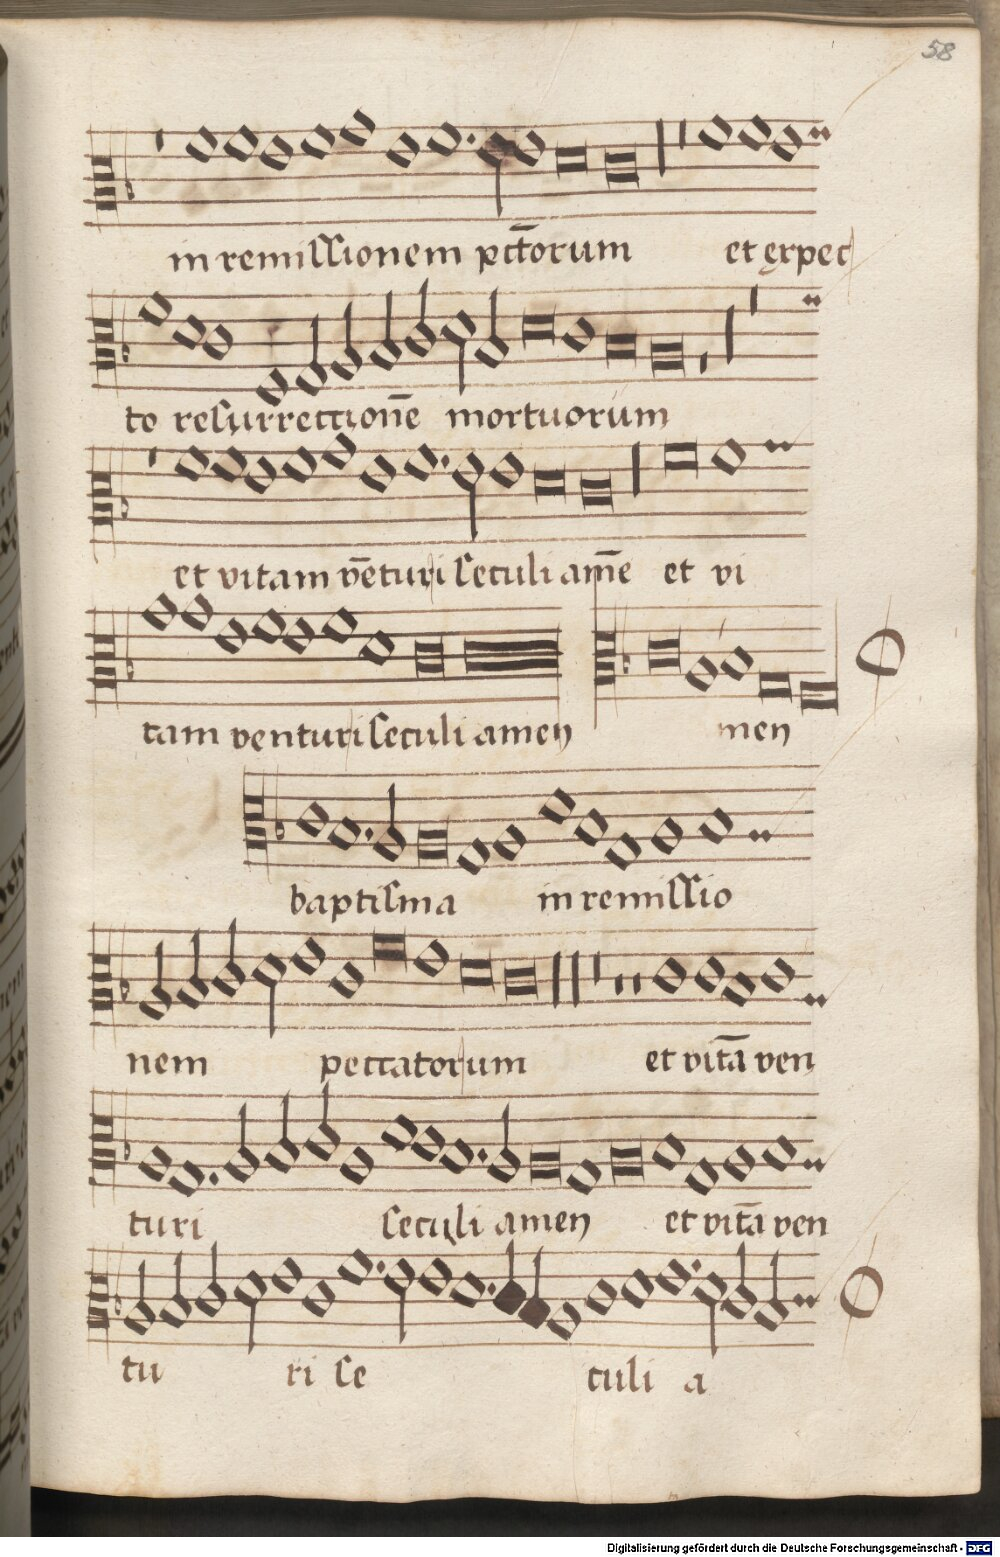 58
in remissionem pct̄orum et expec
to resurrectionē mortuorum
et vitam vētu ri seculi amē et vi
tam venturi seculi amen men
baptisma in remissio
nem peccatorum et vitā ven
turi seculi amen et vitā ven
tu ri se culi a
Digitalisierung gefördert durch die Deutsche Forschungsgemeinschaft - DFG